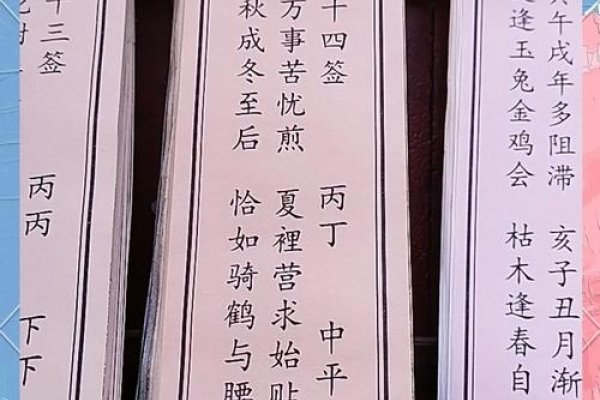 十三签 丙丙 下下
十四签 丙丁 中平
万事苦忧煎 夏裡营求始贴
秋成冬至后 恰如骑鹤与腰
午戌年多阻滞 亥子丑月渐
逢玉兔金鸡会 枯木逢春自